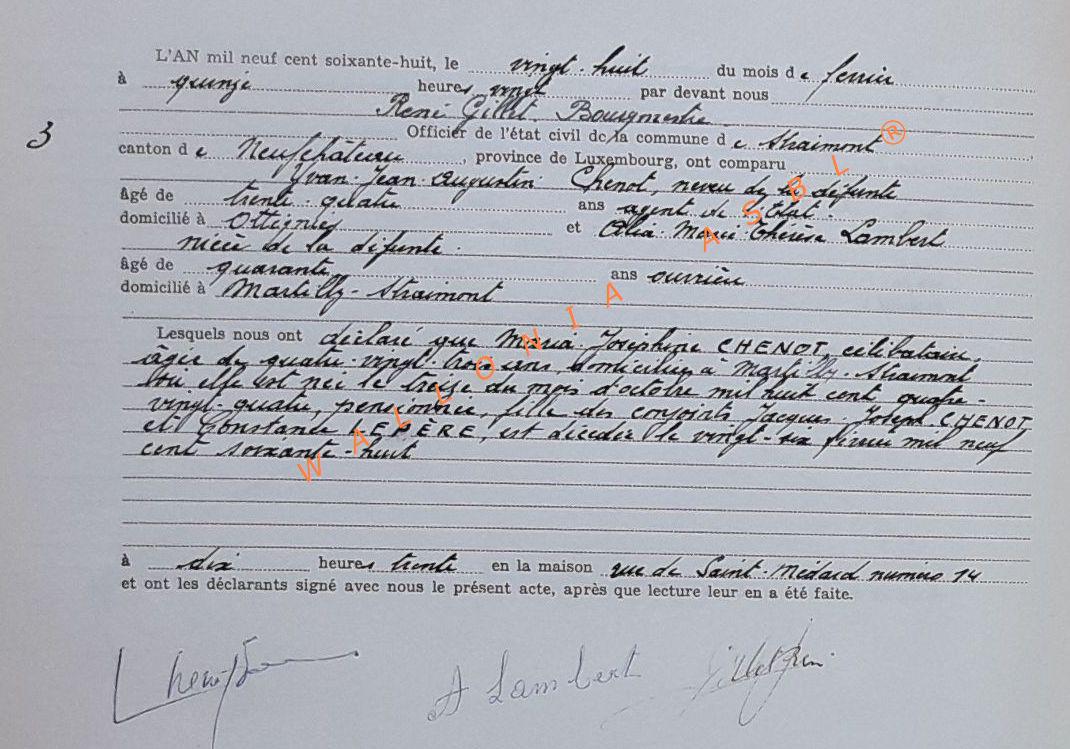 L'AN mil neuf cent soixante-huit, le vingt-huit du mois de février
à quinze heures vingt par devant nous
René Gillet, Bourgmestre
3
Officier de l'état civil de la commune de Straimont
canton de Neufchâteau, province de Luxembourg, ont comparu
Yvan-Jean-Augustin Chenot, neveu de la défunte
âgé de trente-quatre ans agent de l'état.
domicilié à Ottignies et Marie-Thérèse Lambert
nièce de la défunte.
âgé de quarante ans ouvrière
domicilié à Martilly-Straimont
Lesquels nous ont déclaré que Maria Joséphine CHENOT, célibataire,
âgée de quatre-vingt-trois ans, domiciliée à Martilly-Straimont
où elle est née le treize du mois d'octobre mil huit cent quatre-
vingt-quatre, pensionnée, fille des conjoints Jacques-Joseph CHENOT
et Constance LEPÈRE, est décédée le vingt-six février mil neuf
cent soixante-huit
à dix heures trente en la maison rue de Saint-Médard numéro 14
et ont les déclarants signé avec nous le présent acte, après que lecture leur en a été faite.
A Lambert
WALLONIA ASBL ®